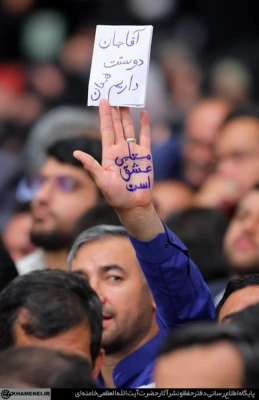 آقاجان
دوستت
داریم
معلمی
عشق
است
KHAMENEI.IR
پایگاه اطلاع‌رسانی دفتر حفظ و نشر آثار حضرت آیت‌الله‌العظمی خامنه‌ای
KHAMENEI.IR